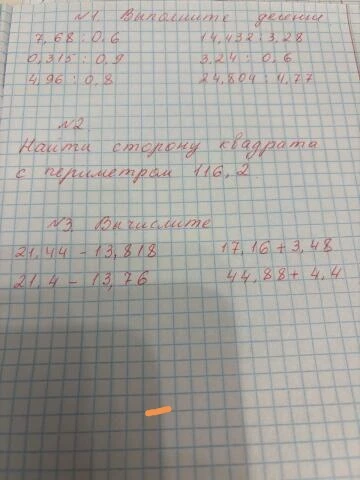 №1. Выполните делении
7,68 : 0,6 14,432 : 3,28
0,315 : 0,9 3,24 : 0,6
4,96 : 0,8 24,804 : 4,77
№2.
Найти сторону квадрата
с периметром 116,2.
№3. Вычислите
21,44 - 13,818 17,16 + 3,48
21,4 - 13,76 44,88 + 4,4